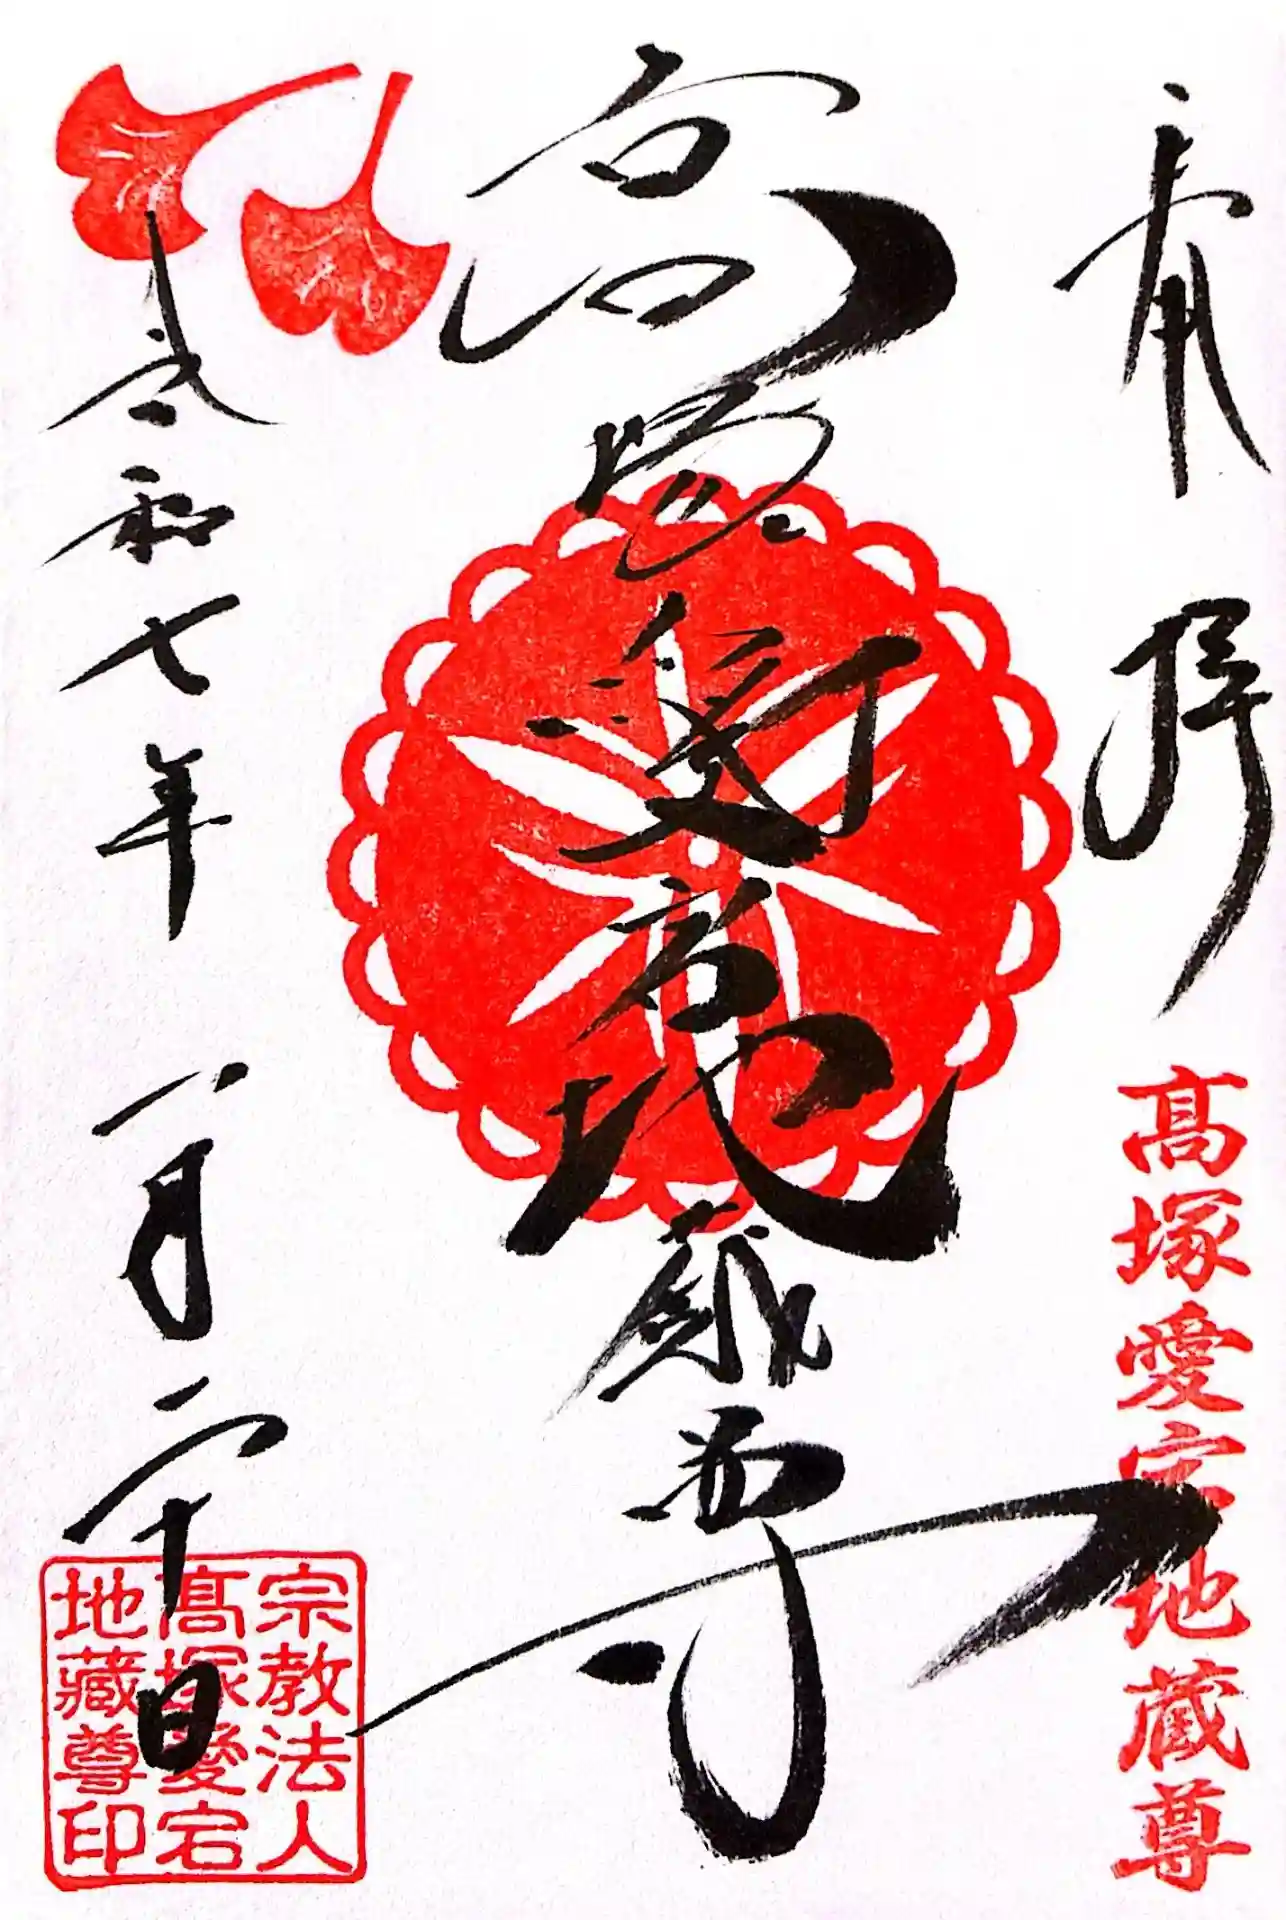 奉拝
髙塚愛宕地蔵尊
高塚愛宕地蔵尊
令和七年一月二十日
宗教法人
髙塚愛宕
地蔵尊印